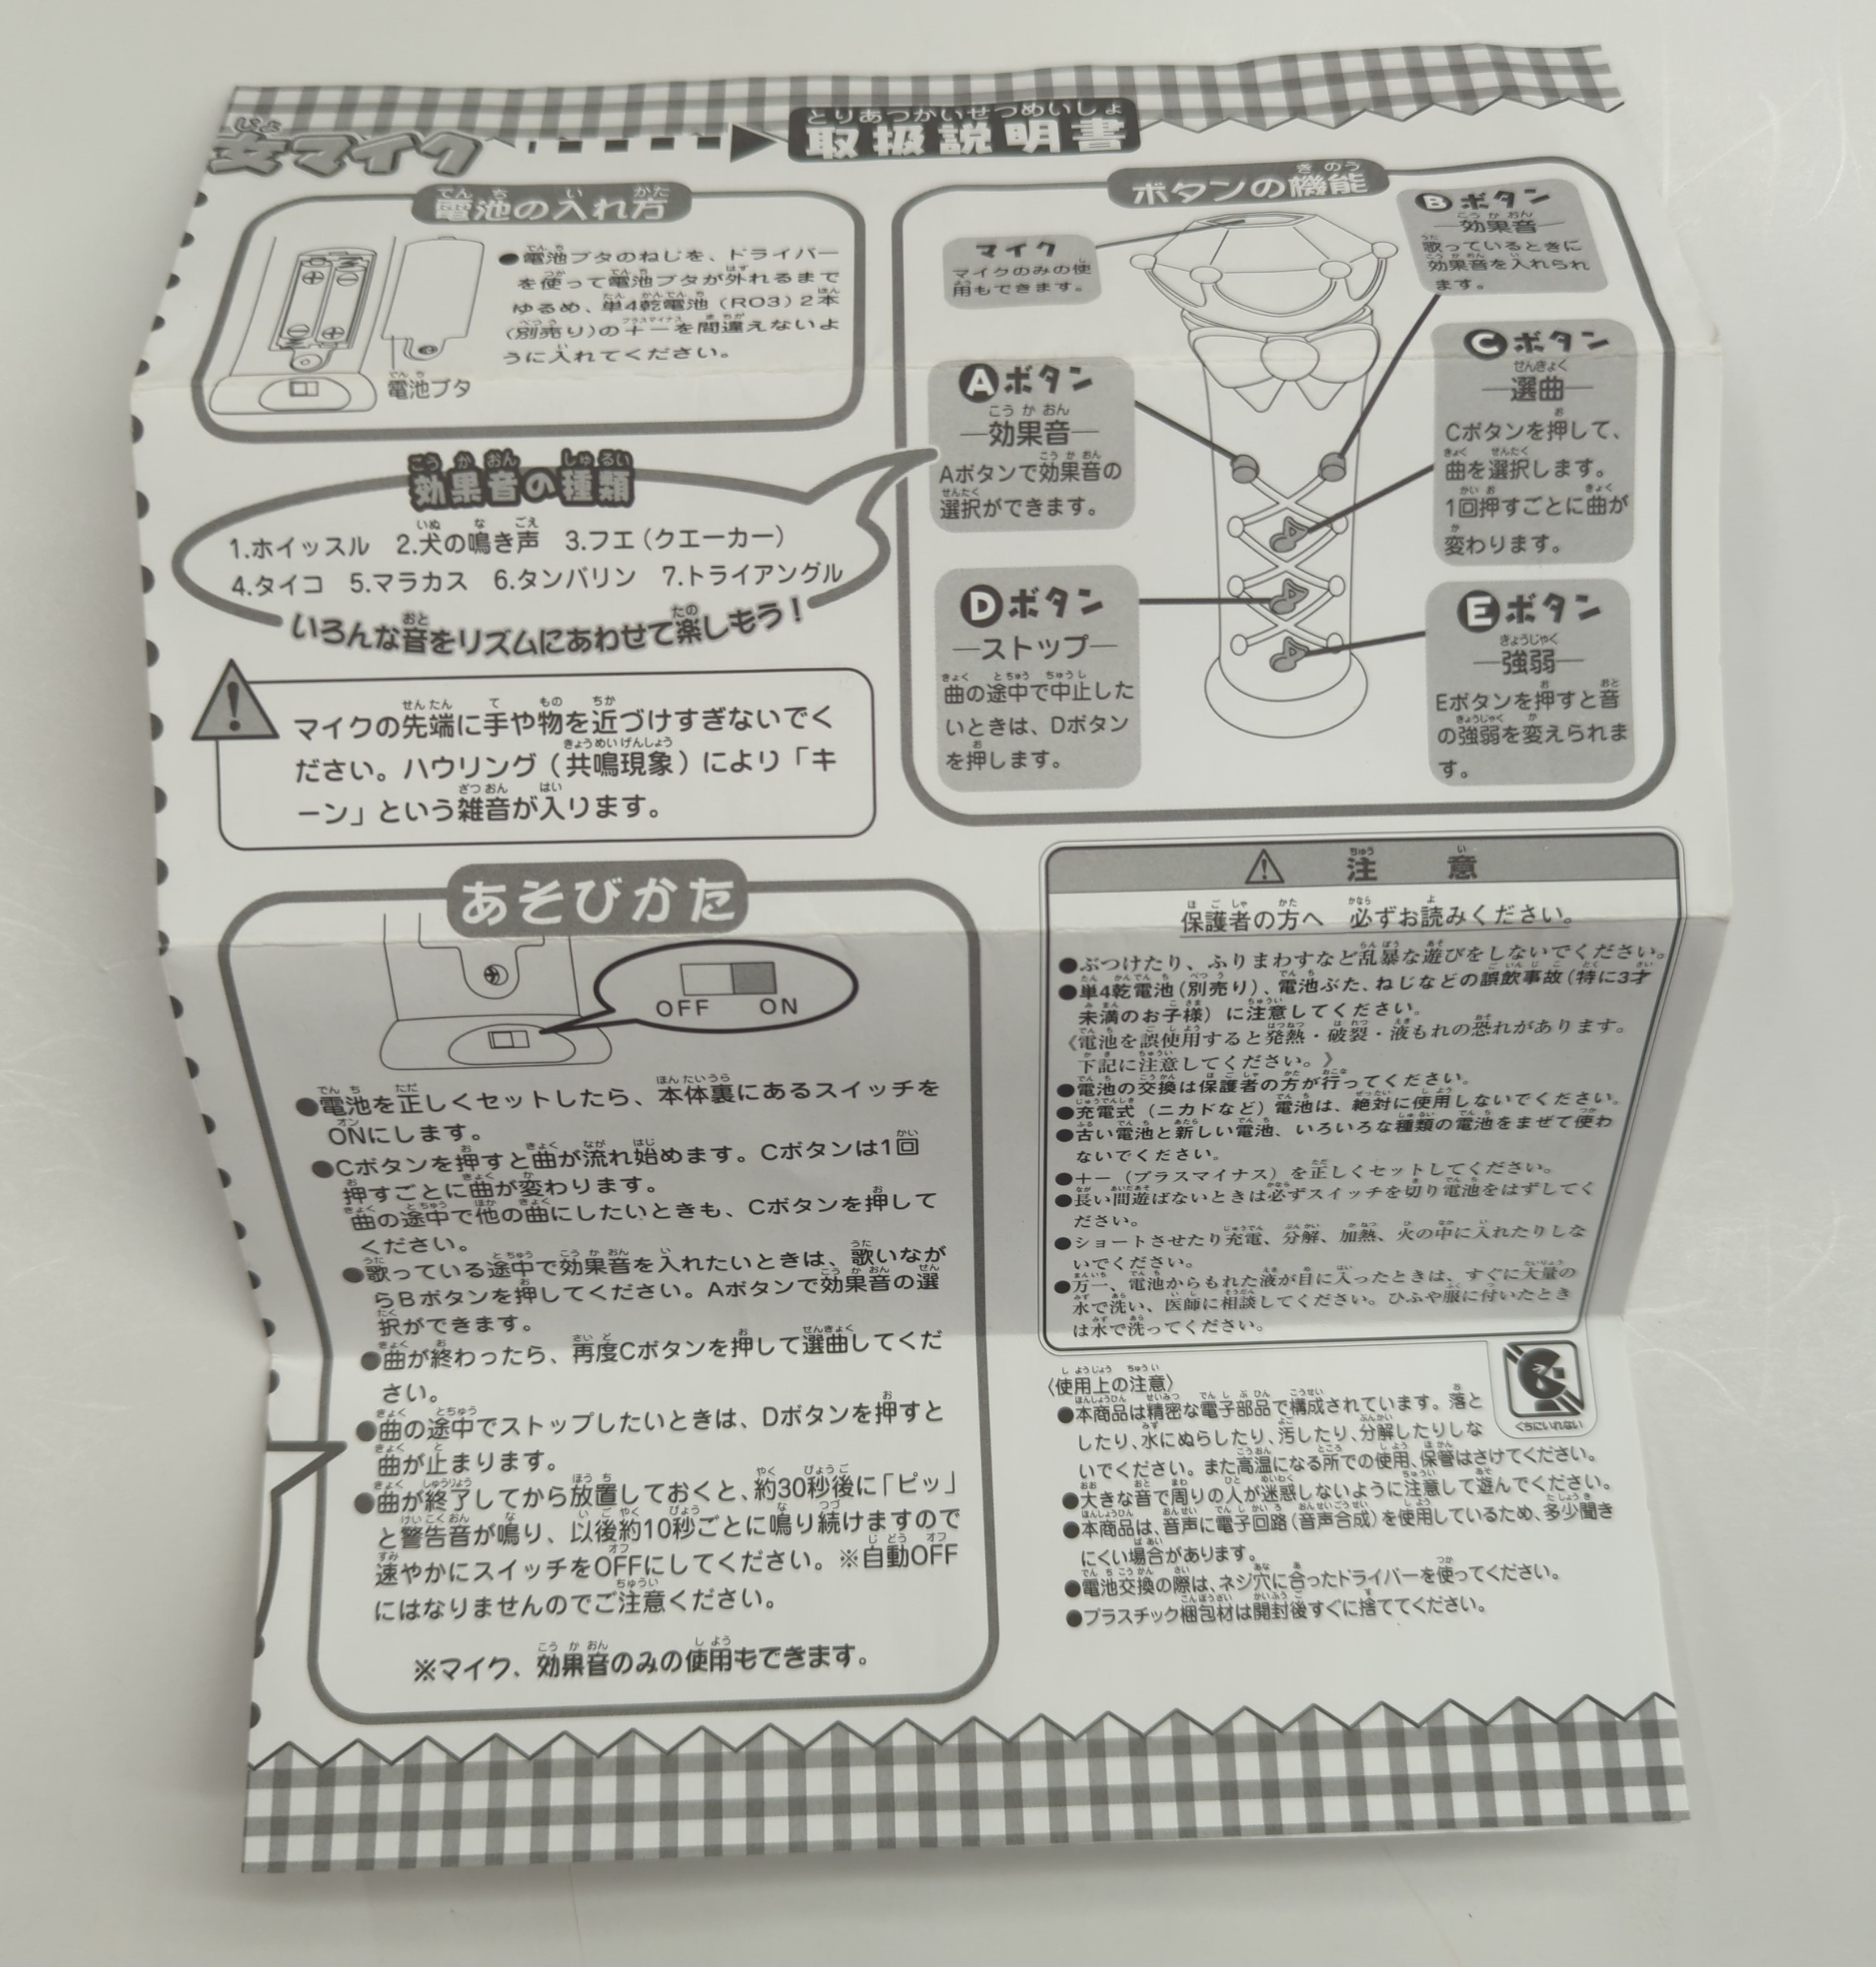 女マイク
取扱説明書
電池の入れ方
●電池ブタのねじを、ドライバー
を使って電池ブタが外れるまで
ゆるめ、単4乾電池（R03）2本
（別売り）の＋－を間違えないよ
うに入れてください。
電池ブタ
効果音の種類
1.ホイッスル 2.犬の鳴き声 3.フエ（クエーカー）
4.タイコ 5.マラカス 6.タンバリン 7.トライアングル
いろんな音をリズムにあわせて楽しもう！
マイクの先端に手や物を近づけすぎないでく
ださい。ハウリング（共鳴現象）により「キ
ーン」という雑音が入ります。
ボタンの機能
マイク
マイクのみの使
用もできます。
Aボタン
―効果音―
Aボタンで効果音の
選択ができます。
Dボタン
―ストップ―
曲の途中で中止した
いときは、Dボタン
を押します。
Bボタン
―効果音―
歌っているときに
効果音を入れられ
ます。
Cボタン
―選曲―
Cボタンを押して、
曲を選択します。
1回押すごとに曲が
変わります。
Eボタン
―強弱―
Eボタンを押すと音
の強弱を変えられま
す。
あそびかた
OFF ON
●電池を正しくセットしたら、本体裏にあるスイッチを
ONにします。
●Cボタンを押すと曲が流れ始めます。Cボタンは1回
押すごとに曲が変わります。
曲の途中で他の曲にしたいときも、Cボタンを押して
ください。
●歌っている途中で効果音を入れたいときは、歌いなが
らBボタンを押してください。Aボタンで効果音の選
択ができます。
●曲が終わったら、再度Cボタンを押して選曲してくだ
さい。
●曲の途中でストップしたいときは、Dボタンを押すと
曲が止まります。
●曲が終了してから放置しておくと、約30秒後に「ピッ」
と警告音が鳴り、以後約10秒ごとに鳴り続けますので
速やかにスイッチをOFFにしてください。※自動OFF
にはなりませんのでご注意ください。
※マイク、効果音のみの使用もできます。
注意
保護者の方へ 必ずお読みください。
●ぶつけたり、ふりまわすなど乱暴な遊びをしないでください。
●単4乾電池（別売り）、電池ぶた、ねじなどの誤飲事故（特に3才
未満のお子様）に注意してください。
《電池を誤使用すると発熱・破裂・液もれの恐れがあります。
下記に注意してください。》
●電池の交換は保護者の方が行ってください。
●充電式（ニカドなど）電池は、絶対に使用しないでください。
●古い電池と新しい電池、いろいろな種類の電池をまぜて使わ
ないでください。
●＋－（プラスマイナス）を正しくセットしてください。
●長い間遊ばないときは必ずスイッチを切り電池をはずしてく
ださい。
●ショートさせたり充電、分解、加熱、火の中に入れたりしな
いでください。
●万一、電池からもれた液が目に入ったときは、すぐに大量の
水で洗い、医師に相談してください。ひふや服に付いたとき
は水で洗ってください。
〈使用上の注意〉
●本商品は精密な電子部品で構成されています。落と
したり、水にぬらしたり、汚したり、分解したりしな
いでください。また高温になる所での使用、保管はさけてください。
●大きな音で周りの人が迷惑しないように注意して遊んでください。
●本商品は、音声に電子回路（音声合成）を使用しているため、多少聞き
にくい場合があります。
●電池交換の際は、ネジ穴に合ったドライバーを使ってください。
●プラスチック梱包材は開封後すぐに捨ててください。
くちにいれない